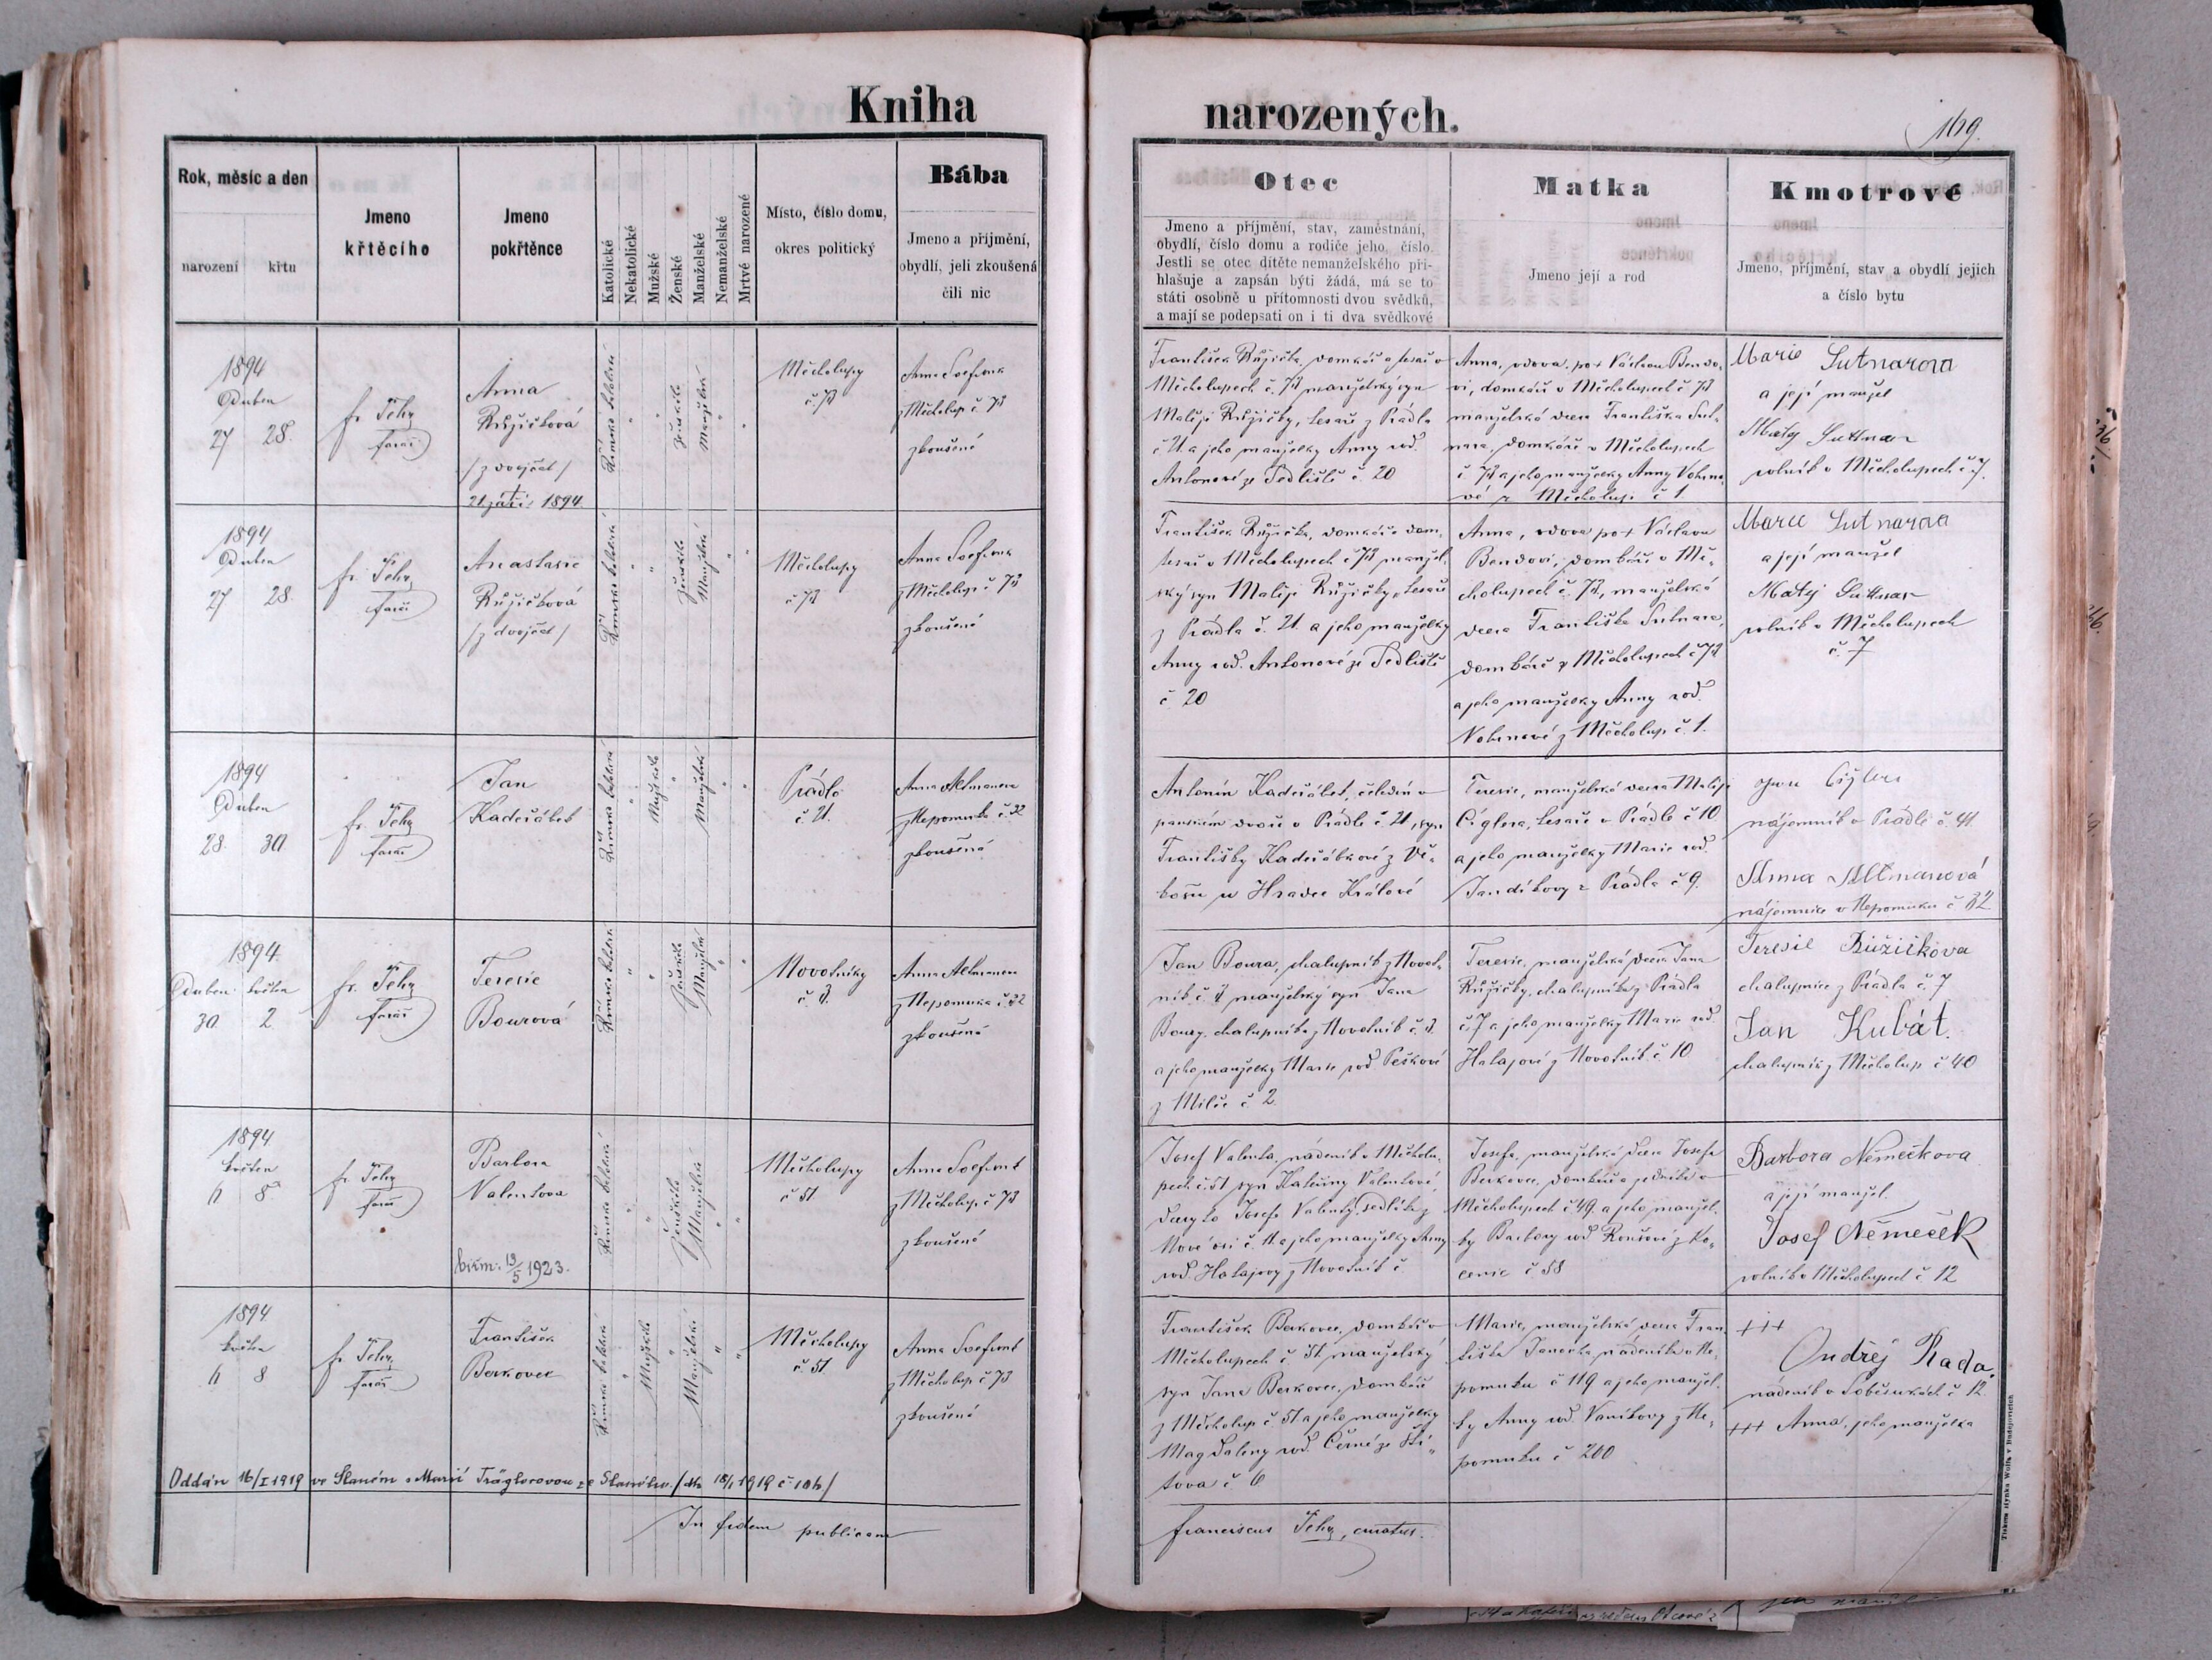 Kniha
narozených.
169.
Rok, měsíc a den
narození
křtu
Jmeno
křtěcího
Jmeno
pokřtěnce
Katolické
Nekatolické
Mužské
Ženské
Manželské
Nemanželské
Mrtvé narozené
Místo, číslo domu,
okres politický
Bába
Jmeno a příjmění,
obydlí, jeli zkoušená
čili nic
Otec
Jmeno a příjmění, stav, zaměstnání,
obydlí, číslo domu a rodiče jeho, číslo.
Jestli se otec dítěte nemanželského při-
hlašuje a zapsán býti žádá, má se to
státi osobně u přítomnosti dvou svědků,
a mají se podepsati on i ti dva svědkové
Matka
Jmeno její a rod
Kmotrové
Jmeno, příjmění, stav a obydlí jejich
a číslo bytu
1894
Duben
27 28.
fr. Tehy
farář
Anna
Růžičková
/z dvojčat/
† 21. září 1894
Římsko katolické
ženské
Manželské
Měcholupy
č. 73
Anna
z Měcholup č. 73
zkoušená
František Růžička, domkář a tesař v
Měcholupech č. 73 manželský syn
Matěje Růžičky, tesaře z Prádla
č 21. a jeho manželky Anny rod.
Antonové ze Sedliště č. 20
Anna, vdova po † Václavu Bendo-
vi, domkáři v Měcholupech č 73
manželská dcera Františka Sut-
nara, domkáře v Měcholupech
č. 73 a jeho manželky Anny
z Měcholup č 1
Marie Sutnarova
a její manžel
Matěj Suttnar
rolník v Měcholupech č. 7.
1894
Duben
27 28.
fr. Tehy
farář
Anastasie
Růžičková
/z dvojčat/
Římsko katolické
ženské
Manželské
Měcholupy
č 73
Anna
z Měcholup č 73
zkoušená
František Růžička, domkář a
tesař v Měcholupech č 73 manžel-
ský syn Matěje Růžičky, tesaře
z Prádla č. 21. a jeho manželky
Anny rod. Antonové ze Sedliště
č 20
Anna, vdova po † Václavu
Bendovi, domkáři v Mě-
cholupech č. 73, manželská
dcera Františka Sutnara,
domkáře z Měcholupech č 73
a jeho manželky Anny rod.
z Měcholup č. 1.
Marie Sutnarova
a její manžel
Matěj Suttnar
rolník v Měcholupech
č. 7
1894
Duben
28. 30
fr. Tehy
farář
Jan
Kadeřábek
Římsko katolické
Mužské
Manželské
Prádlo
č. 21.
Anna Altmanova
z Nepomuka č. 32
zkoušená
Antonín Kadeřábek, čeledín v
panském dvoře v Prádle č. 21, syn
Františky Kadeřábkové z Vě-
koše u Hradce Králové
Teresie, manželská dcera Matěje
Cíglera, tesaře v Prádle č 10
a jeho manželky Marie rod.
Jandíkovy z Prádla č 9.
nájemník v Prádle č. 41.
Anna Altmanová
nájemnice v Nepomuku č 32
1894
Duben května
30 2
fr. Tehy
farář
Teresie
Bourová
Římsko katolické
Ženské
Manželské
Novotníky
č. 3.
Anna Altmanova
z Nepomuka č. 32
zkoušená
Jan Boura, chalupník z Novot-
ník č. 3 manželský syn Jana
Boury, chalupníka z Novotník č. 3.
a jeho manželky Marie rod. Peškové
z Milče č. 2.
Teresie, manželská dcera Jana
Růžičky, chalupníka z Prádla
č. 7 a jeho manželky Marie rod.
Halajové z Novotník č. 10
Teresie Růžičkova
chalupnice z Prádla č. 7
Jan Kubát.
chalupník z Měcholup č 40
1894
květen
6 8
fr. Tehy
farář
Barbora
Valentova
biřm. 13/5 1923.
Římsko katolické
Ženské
Manželské
Měcholupy
č 51
Anna
z Měcholup č 73
zkoušená
Josef Valenta, nádeník v Měcholu-
pech č. 51 syn Kateřiny Valentové,
dcery to Josefa Valenty, sedláka z
Nové vsi č. 11. a jeho manželky Anny
rod. Halajovy z Novotník č.
Josefa, manželská dcera Josefa
Berkovce, domkáře v
Měcholupech č 49. a jeho manžel-
ky Barbory rod. z Ko-
cenic č 58
Barbora Němečkova
a její manžel.
Josef Němeček
rolník v Měcholupech č 12
1894
květen
6 8
fr. Tehy
farář
František
Berkovec
Římsko katolické
Mužské
Manželské
Měcholupy
č 51.
Anna
z Měcholup č 73
zkoušená
František Berkovec, domkář v
Měcholupech č. 51. manželský
syn Jana Berkovce, domkáře
z Měcholup č 51 a jeho manželky
Magdaleny rod. Černé ze Ští-
tova č 6
Marie, manželská dcera Fran-
tiška Janečka, nádeníka v Ne-
pomuku č 119 a jeho manžel-
ky Anny rod. Vaníkovy z Ne-
pomuku č 200
+++
Ondřej Rada.
nádeník v Soběsukách č 12.
+++ Anna, jeho manželka
Oddán 16/I 1919 ve Slaném s Marií ze
In fidem publicam
Franciscus Tehy, curatus.
Tiskem Hynka Wolfa v Budějovicích